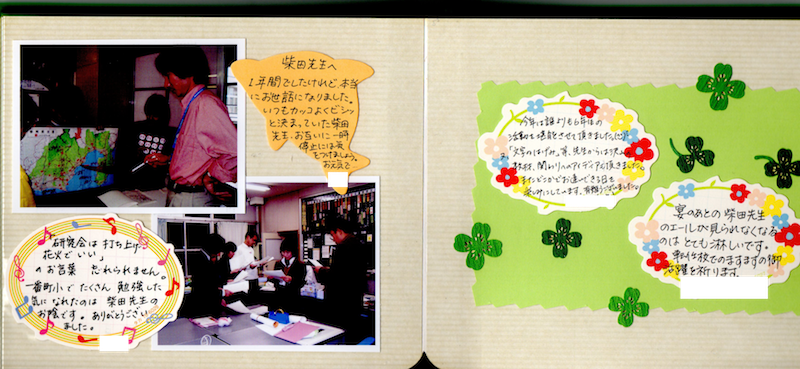 柴田先生へ
1年間でしたけれど、本当
にお世話になりました。
いつもカッコよくビシッ
と決まっていた柴田
先生、お互いに一時
停止には気
をつけましょう。
お元気で
「研究会は打ち上げ
花火でいい」
のお言葉 忘れられません。
一番町小でたくさん勉強した
気になれたのは柴田先生の
お陰です。ありがとうござい
ました。
今年は誰よりも6年生の
活動を堪能させて頂きました。
「文学のはげみ」等、先生からは
教材、関わりへのアイディアを頂きました。
またどこかでお逢いできる日を
楽しみにしています。
宴のあとの柴田先生
のエールが見られなくなる
のはとても淋しいです。
転任校でのますますの御
活躍を祈ります。